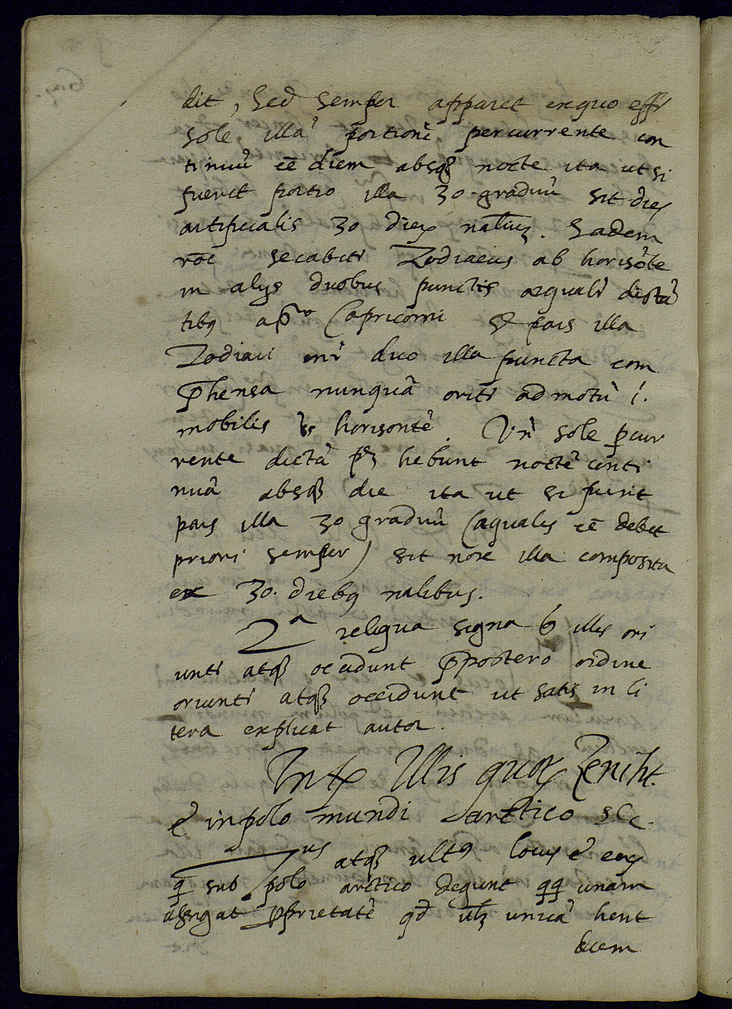 dit, sed semper apparet ex quo effr
sole illā portionē percurrente con
tinuū eē diem absq nocte ita ut si
fuerit portio illa 30 graduū sit dies
artificialis 30 dies naliū. Eadem
rōe secabitr Zodiacus ab horisōte
in alijs duobus punctis aequalr distā
tibq a p.º Capricorni & pars illa
Zodiaci intr duo illa puncta com
phensa nunquā oritr ad motū i.
mobilis is horisontē. Un sole pcur
rente dictā pm hebunt noctē conti
nuā absq die ita ut si fuerit
pars illa 30 graduū (aqualis eē debet
priori semper) sit nox illa composita
ex 30. diebq nalibus.
2ª reliqua signa illis ori
untr atq occidunt ppostero ordine
oriuntr atq occidunt ut satis in li
tera explicat autor.
Illis quor Zenith.
ē in polo mundi arctico &c.
7us atq ultq locus ē eor
q sub polo arctico degunt qq unam
assigat pprietatē qd unicā hent
diem